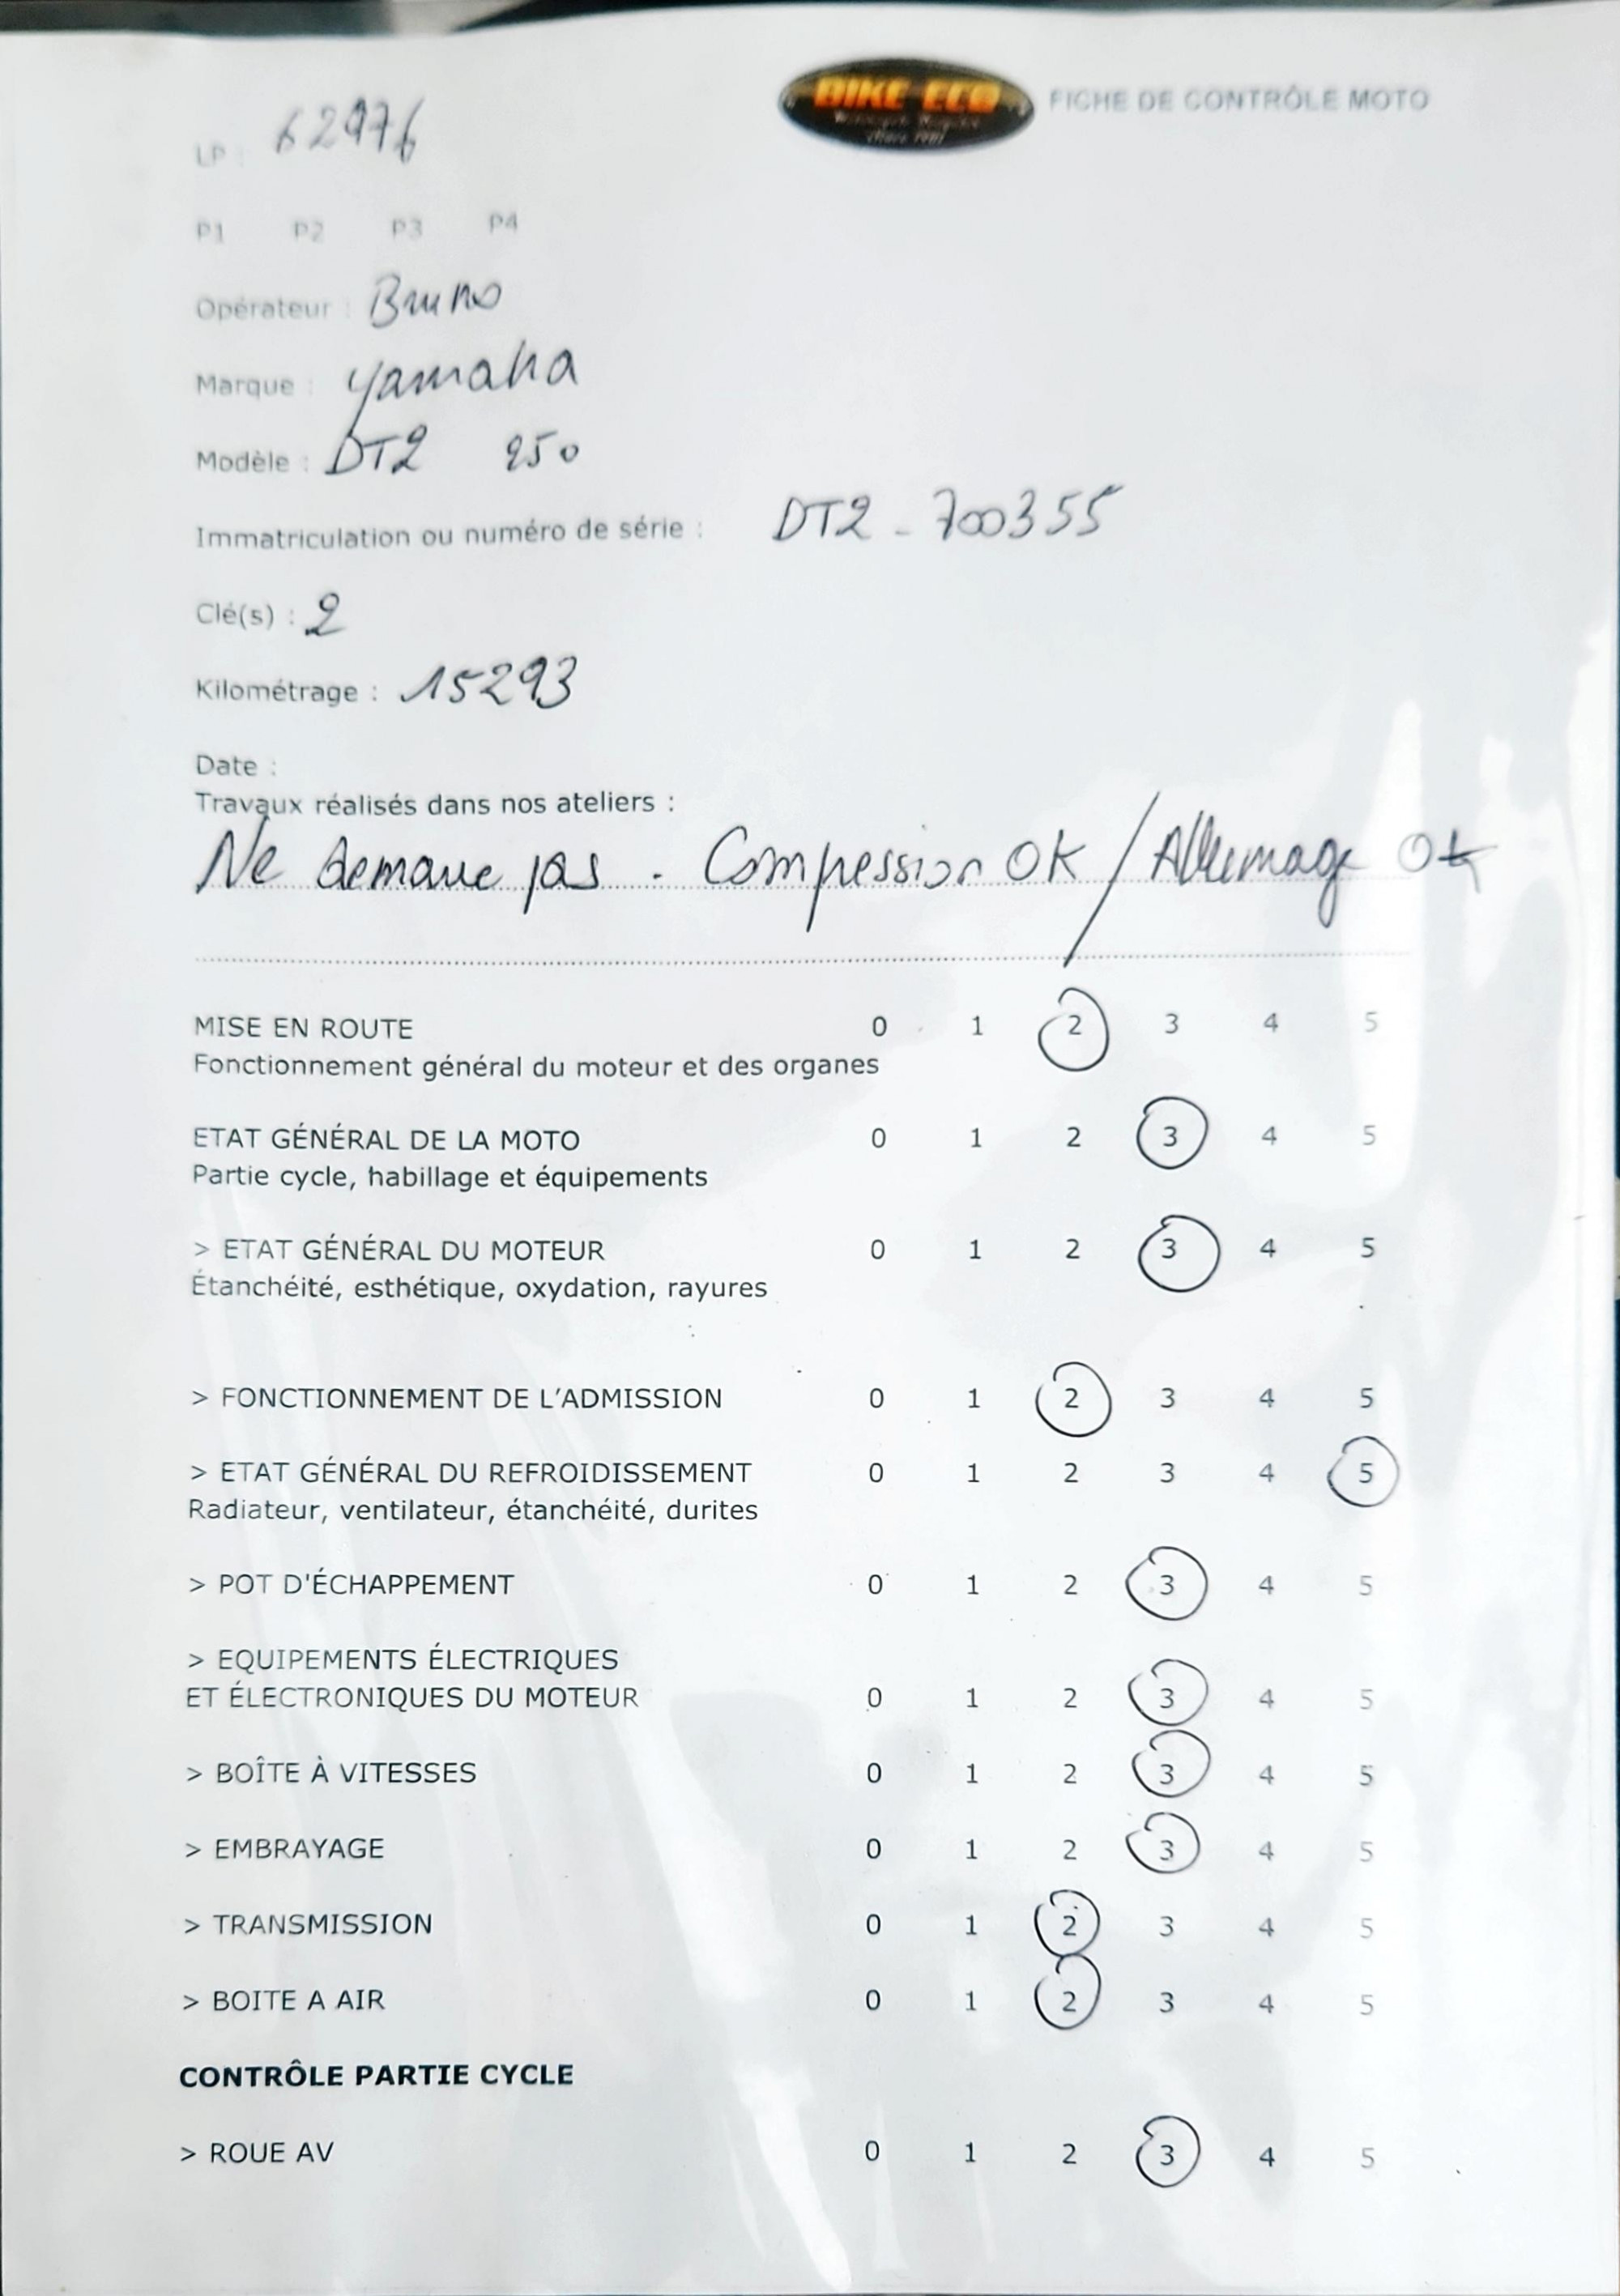 BIKE ECO
FICHE DE CONTRÔLE MOTO
LP : 62976
P1 P2 P3 P4
Opérateur : Bruno
Marque : yamaha
Modèle : DT2 250
Immatriculation ou numéro de série : DT2 - 700355
Clé(s) : 2
Kilométrage : 15293
Date :
Travaux réalisés dans nos ateliers :
Ne demarre pas . Compression OK / Allumage OK
MISE EN ROUTE 0 1 2 3 4 5
Fonctionnement général du moteur et des organes
ETAT GÉNÉRAL DE LA MOTO 0 1 2 3 4 5
Partie cycle, habillage et équipements
> ETAT GÉNÉRAL DU MOTEUR 0 1 2 3 4 5
Étanchéité, esthétique, oxydation, rayures
> FONCTIONNEMENT DE L'ADMISSION 0 1 2 3 4 5
> ETAT GÉNÉRAL DU REFROIDISSEMENT 0 1 2 3 4 5
Radiateur, ventilateur, étanchéité, durites
> POT D'ÉCHAPPEMENT 0 1 2 3 4 5
> EQUIPEMENTS ÉLECTRIQUES
ET ÉLECTRONIQUES DU MOTEUR 0 1 2 3 4 5
> BOÎTE À VITESSES 0 1 2 3 4 5
> EMBRAYAGE 0 1 2 3 4 5
> TRANSMISSION 0 1 2 3 4 5
> BOITE A AIR 0 1 2 3 4 5
CONTRÔLE PARTIE CYCLE
> ROUE AV 0 1 2 3 4 5